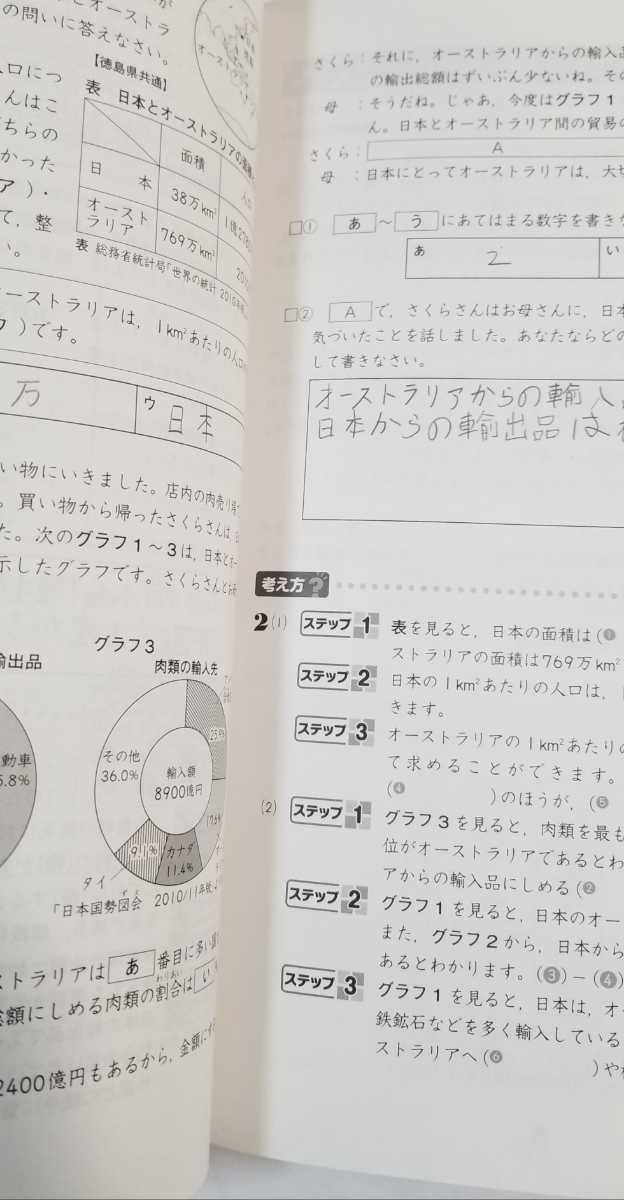 とオーストラ
の問いに答えなさい。
【徳島県共通】
オーストラリア
人口につ
んはこ
どちらの
かった
ア）・
て，整
い。
表 日本とオーストラリアの面積
面積
日本
38万km²
オーストラリア
769万km²
表 総務省統計局「世界の統計 2010年
オーストラリアは，1km²あたりの人口
）です。
万
ウ 日本
い物にいきました。店内の肉売り場
。買い物から帰ったさくらさんは
た。次のグラフ1～3は，日本とオー
示したグラフです。さくらさんとお
輸出品
動車
5.8%
グラフ3
肉類の輸入先
その他
36.0%
輸入額
8900億円
9.1%
カナダ
11.4%
タイ
「日本国勢図会 2010/11年版」
ストラリアは あ 番目に多い
総額にしめる肉類の割合は い
2400億円もあるから，金額にす
さくら：それに，オーストラリアからの輸入品
の輸出総額はずいぶん少ないね。その
母：そうだね。じゃあ，今度はグラフ1
ん。日本とオーストラリア間の貿易の
さくら： A
母：日本にとってオーストラリアは，大切
□① あ ～ う にあてはまる数字を書きな
あ 2 い
□② A で，さくらさんはお母さんに，日本
気づいたことを話しました。あなたならどの
して書きなさい。
オーストラリアからの輸入
日本からの輸出品は
考え方?
2 (1) ステップ1 表を見ると，日本の面積は(❶
ストラリアの面積は769万km²
ステップ2 日本の1km²あたりの人口は，
きます。
ステップ3 オーストラリアの1km²あたりの
て求めることができます。
(❹ )のほうが，(❺
(2) ステップ1 グラフ3を見ると，肉類を最も
位がオーストラリアであるとわ
アからの輸入品にしめる(❷
ステップ2 グラフ1を見ると，日本のオー
また，グラフ2から，日本から
あるとわかります。(❸)－(❹)
ステップ3 グラフ1を見ると，日本は，オー
鉄鉱石などを多く輸入している
ストラリアへ(❻ )や